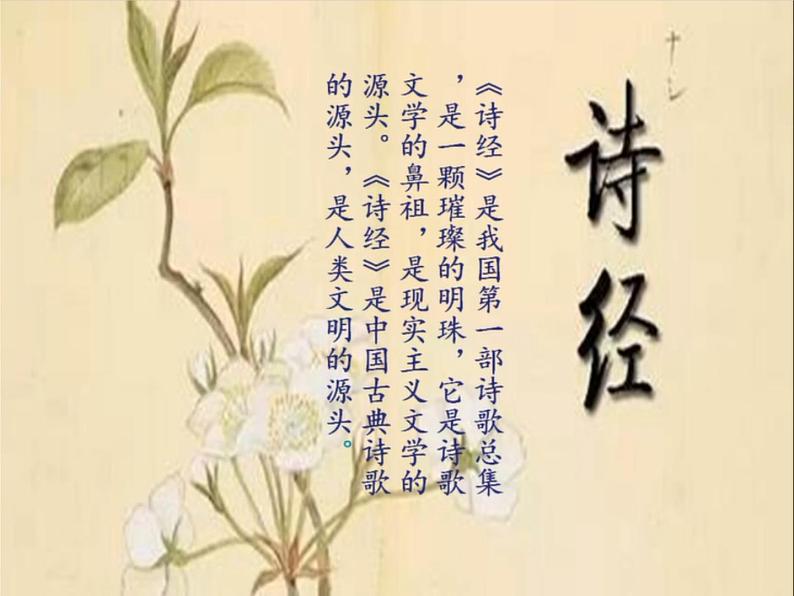 诗经
《诗经》是我国第一部诗歌总集
，是一颗璀璨的明珠，它是诗歌
文学的鼻祖，是现实主义文学的
源头。《诗经》是中国古典诗歌
的源头，是人类文明的源头。